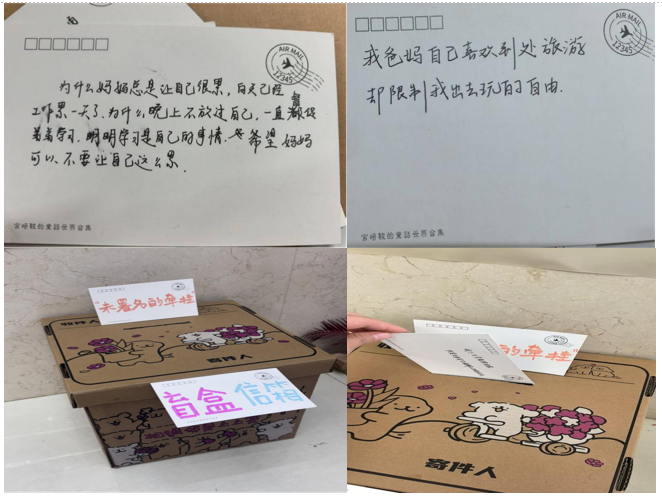 AIR MAIL
12345
为什么妈妈总是让自己很累，白天已经
工作累一天了，为什么晚上不放过自己，一直
着学习，明明学习是自己的事情，希望妈妈
可以不要让自己这么累.
宫崎骏的童话世界合集
AIR MAIL
12345
我爸妈自己喜欢到处旅游
却限制我出去玩的自由.
宫崎骏的童话世界合集
"未署名的牵挂"
收件人
寄件人
盲盒信箱
的牵挂"
寄件人